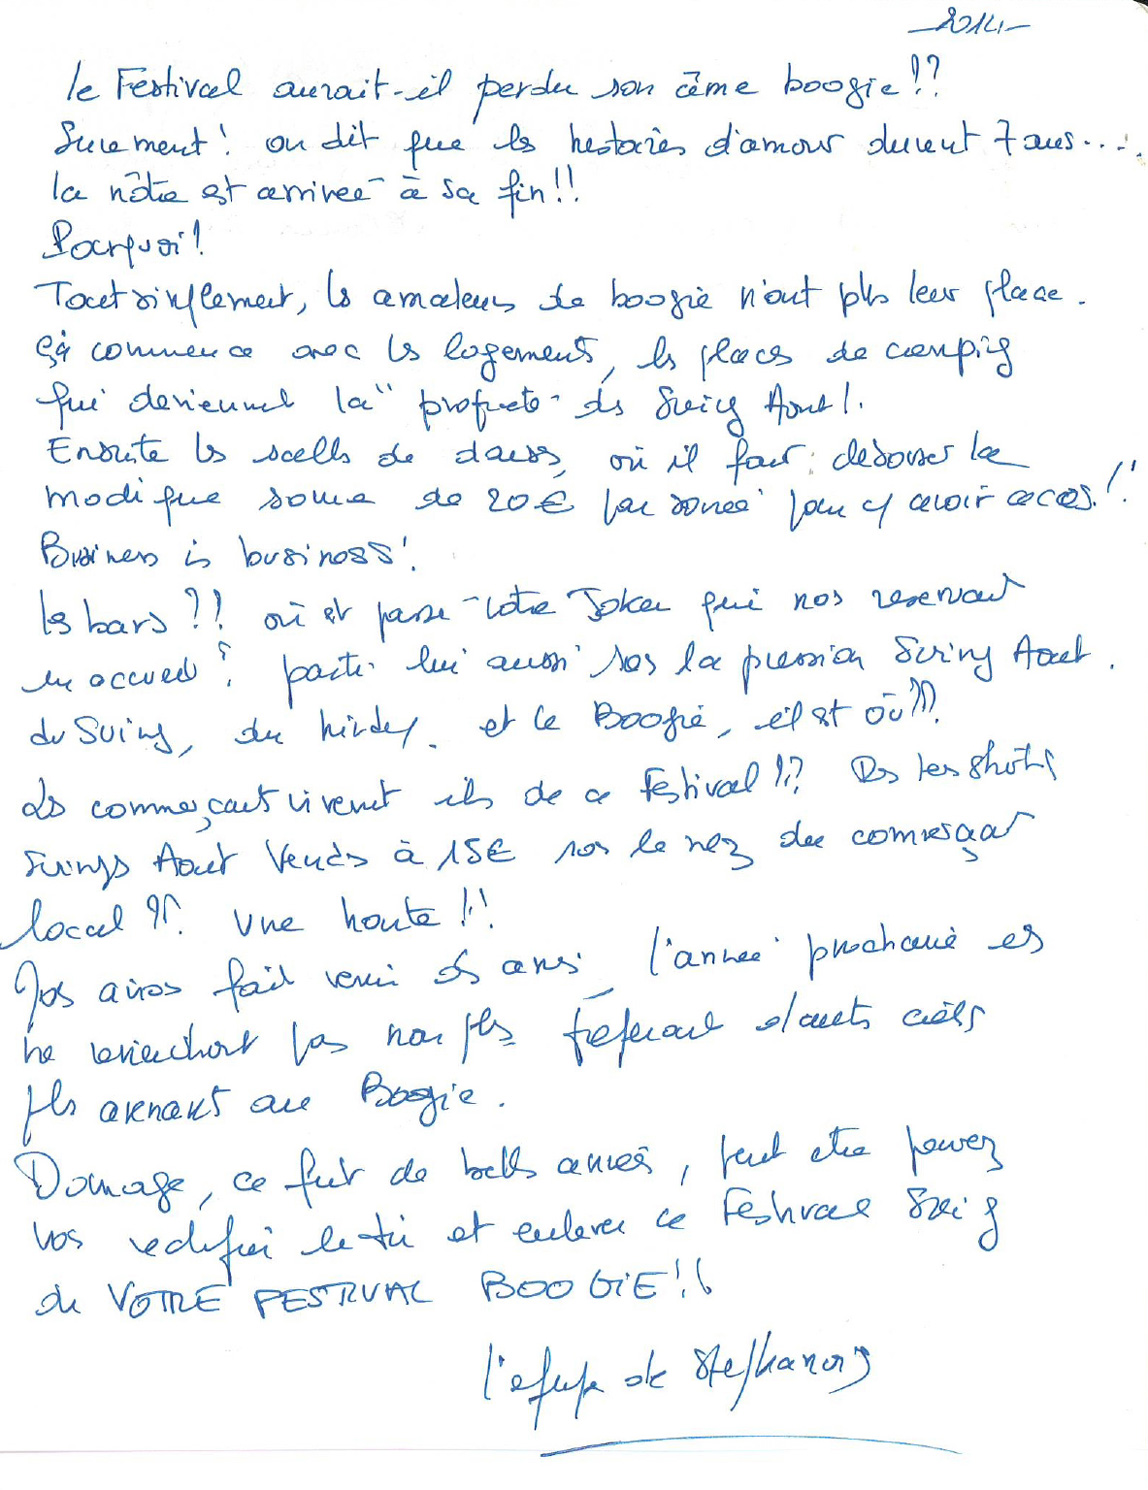 -2014-
le Festival aurait-il perdu son âme boogie!!?
Surement! on dit que les histoires d'amour durent 7 ans....
la nôtre est arrivée à sa fin!!
Pourquoi!
Tout simplement, les amateurs de boogie n'ont plus leur place.
çà commence avec les logements, les places de camping
qui deviennent la " propriété des Swing Aout!.
Ensuite les salles de danses, où il faut débourser la
modique somme de 20€ par soirée pour y avoir accès!!
Business is business!
les bars?! où est passé votre Joker qui nos reservait
un accueil? parti lui aussi sos la pression Swing Aout.
du Swing, du lindy. et le Boogie, il est où?!?
Les commerçants vivent ils de ce festival!!? Des tee shirts
Swings Aout Vendus à 15€ sos le nez du commerçant
local?!? Une honte!!!
Nos avions fait venir des amis l'année prochaine ils
ne reviendront pas non plus préferant d'autres ciels
plus avenants au Boogie.
Domage, ce fut de belles années, peut etre pouvez
vos redifier le tir et enlever ce Festival Swing
de VOTRE FESTIVAL BOOGIE!!
l'équipe de